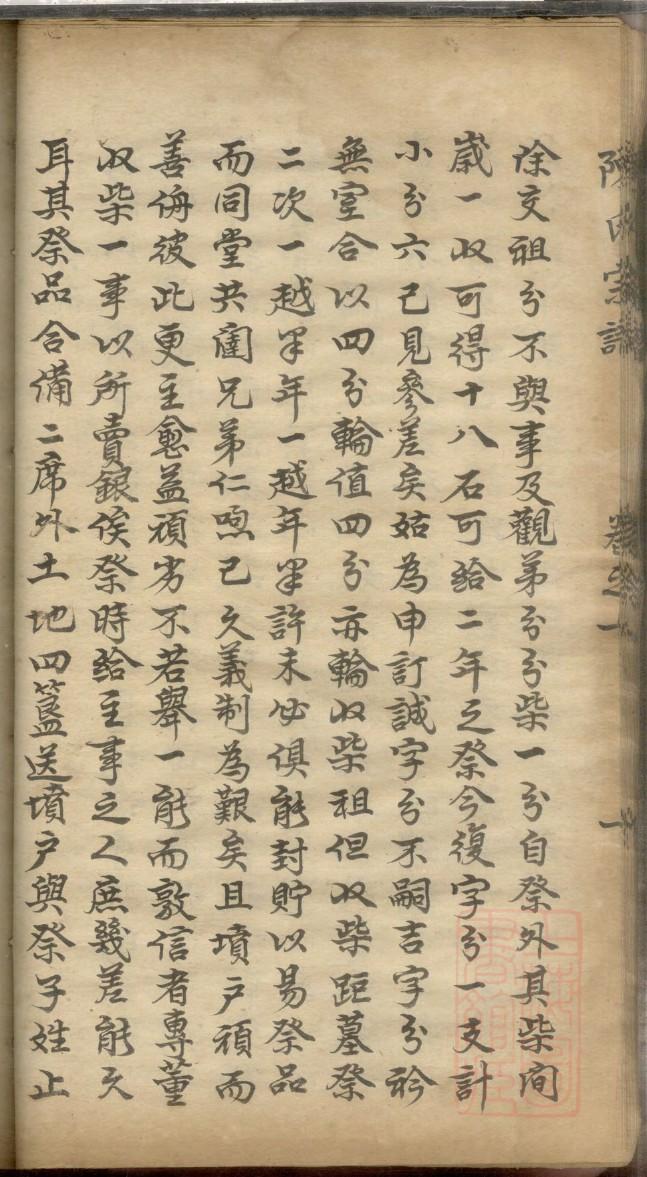 除交祖分不與事及觀弟分分柴一分自祭外其柴間
歲一收可得十八石可給二年之祭今復字分一支計
小分六已見參差矣姑為申訂誠字分不嗣吉字分衿
無室合以四分輪值四分亦輪收柴祖但收柴距墓祭
二次一越半年一越年半許未必俱能封貯以易祭品
而同堂共閫兄弟仁愿已久義制為艱矣且墳戶頑而
善侮彼此更主愈益頑劣不若舉一能而敦信者專董
收柴一事以所賣銀俟祭時給主事之人庶幾差能久
耳其祭品合備二席外土地四簋送墳戶與祭子姓止